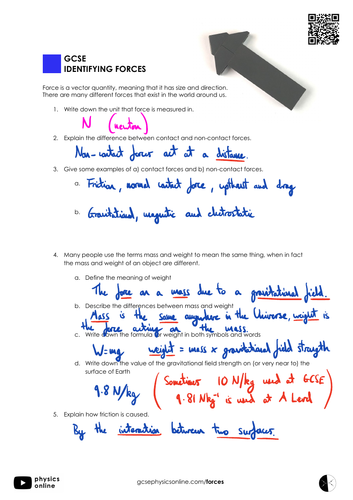 GCSE
IDENTIFYING FORCES
Force is a vector quantity, meaning that it has size and direction.
There are many different forces that exist in the world around us.
1. Write down the unit that force is measured in.
N (newton)
2. Explain the difference between contact and non-contact forces.
Non-contact forces act at a distance.
3. Give some examples of a) contact forces and b) non-contact forces.
a. Friction, normal contact force, upthrust and drag
b. Gravitational, magnetic and electrostatic
4. Many people use the terms mass and weight to mean the same thing, when in fact
the mass and weight of an object are different.
a. Define the meaning of weight
The force on a mass due to a gravitational field.
b. Describe the differences between mass and weight
Mass is the same anywhere in the Universe, weight is
the force acting on the mass.
c. Write down the formula for weight in both symbols and words
W=mg weight = mass x gravitational field strength
d. Write down the value of the gravitational field strength on (or very near to) the
surface of Earth
9.8 N/kg (Sometimes 10 N/kg used at GCSE
9.81 Nkg⁻¹ is used at A Level)
5. Explain how friction is caused.
By the interaction between two surfaces.
physics
online
gcsephysicsonline.com/forces